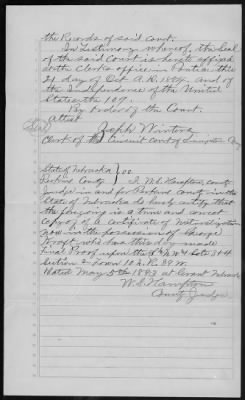 the Records of said Court.
In Testimony whereof, the Seal
of the said Court is hereto affixed
at the Clerks office in Pontiac this
day of Oct A.D. 18 and of
the Independence of the United
States the 109.
By order of the Court.
Attest
Seal
Joseph Winters
Clerk of the Circuit Court of Livingston Co
State of Nebraska } ss
Perkins County } I W.S. Hampton, county
Judge in and for Perkins county in the
State of Nebraska do hereby certify that
the foregoing is a true and correct
copy of a Certificate of Naturalization
now in the possession of George
who has this day made
Final Proof upon the Lots 3+4
Section 2 Town 10 N. R. 39 W.
Dated May 5th 1893 at Grant Nebraska
W.S. Hampton
County Judge